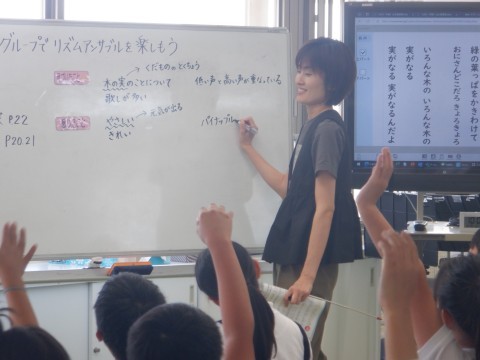 グループでリズムアンサンブルを楽しもう
くだもののとくちょう
木の実のことについて
歌詞が多い
低い声と高い声が重なっている
元気が出る
P.22
やさしい
きれい
P20.21
パイナップル
緑の葉っぱをかきわけて
おにさんどこだろきょろきょろ
いろんな木の いろんな木の
実がなる
実がなる 実がなるんだよ